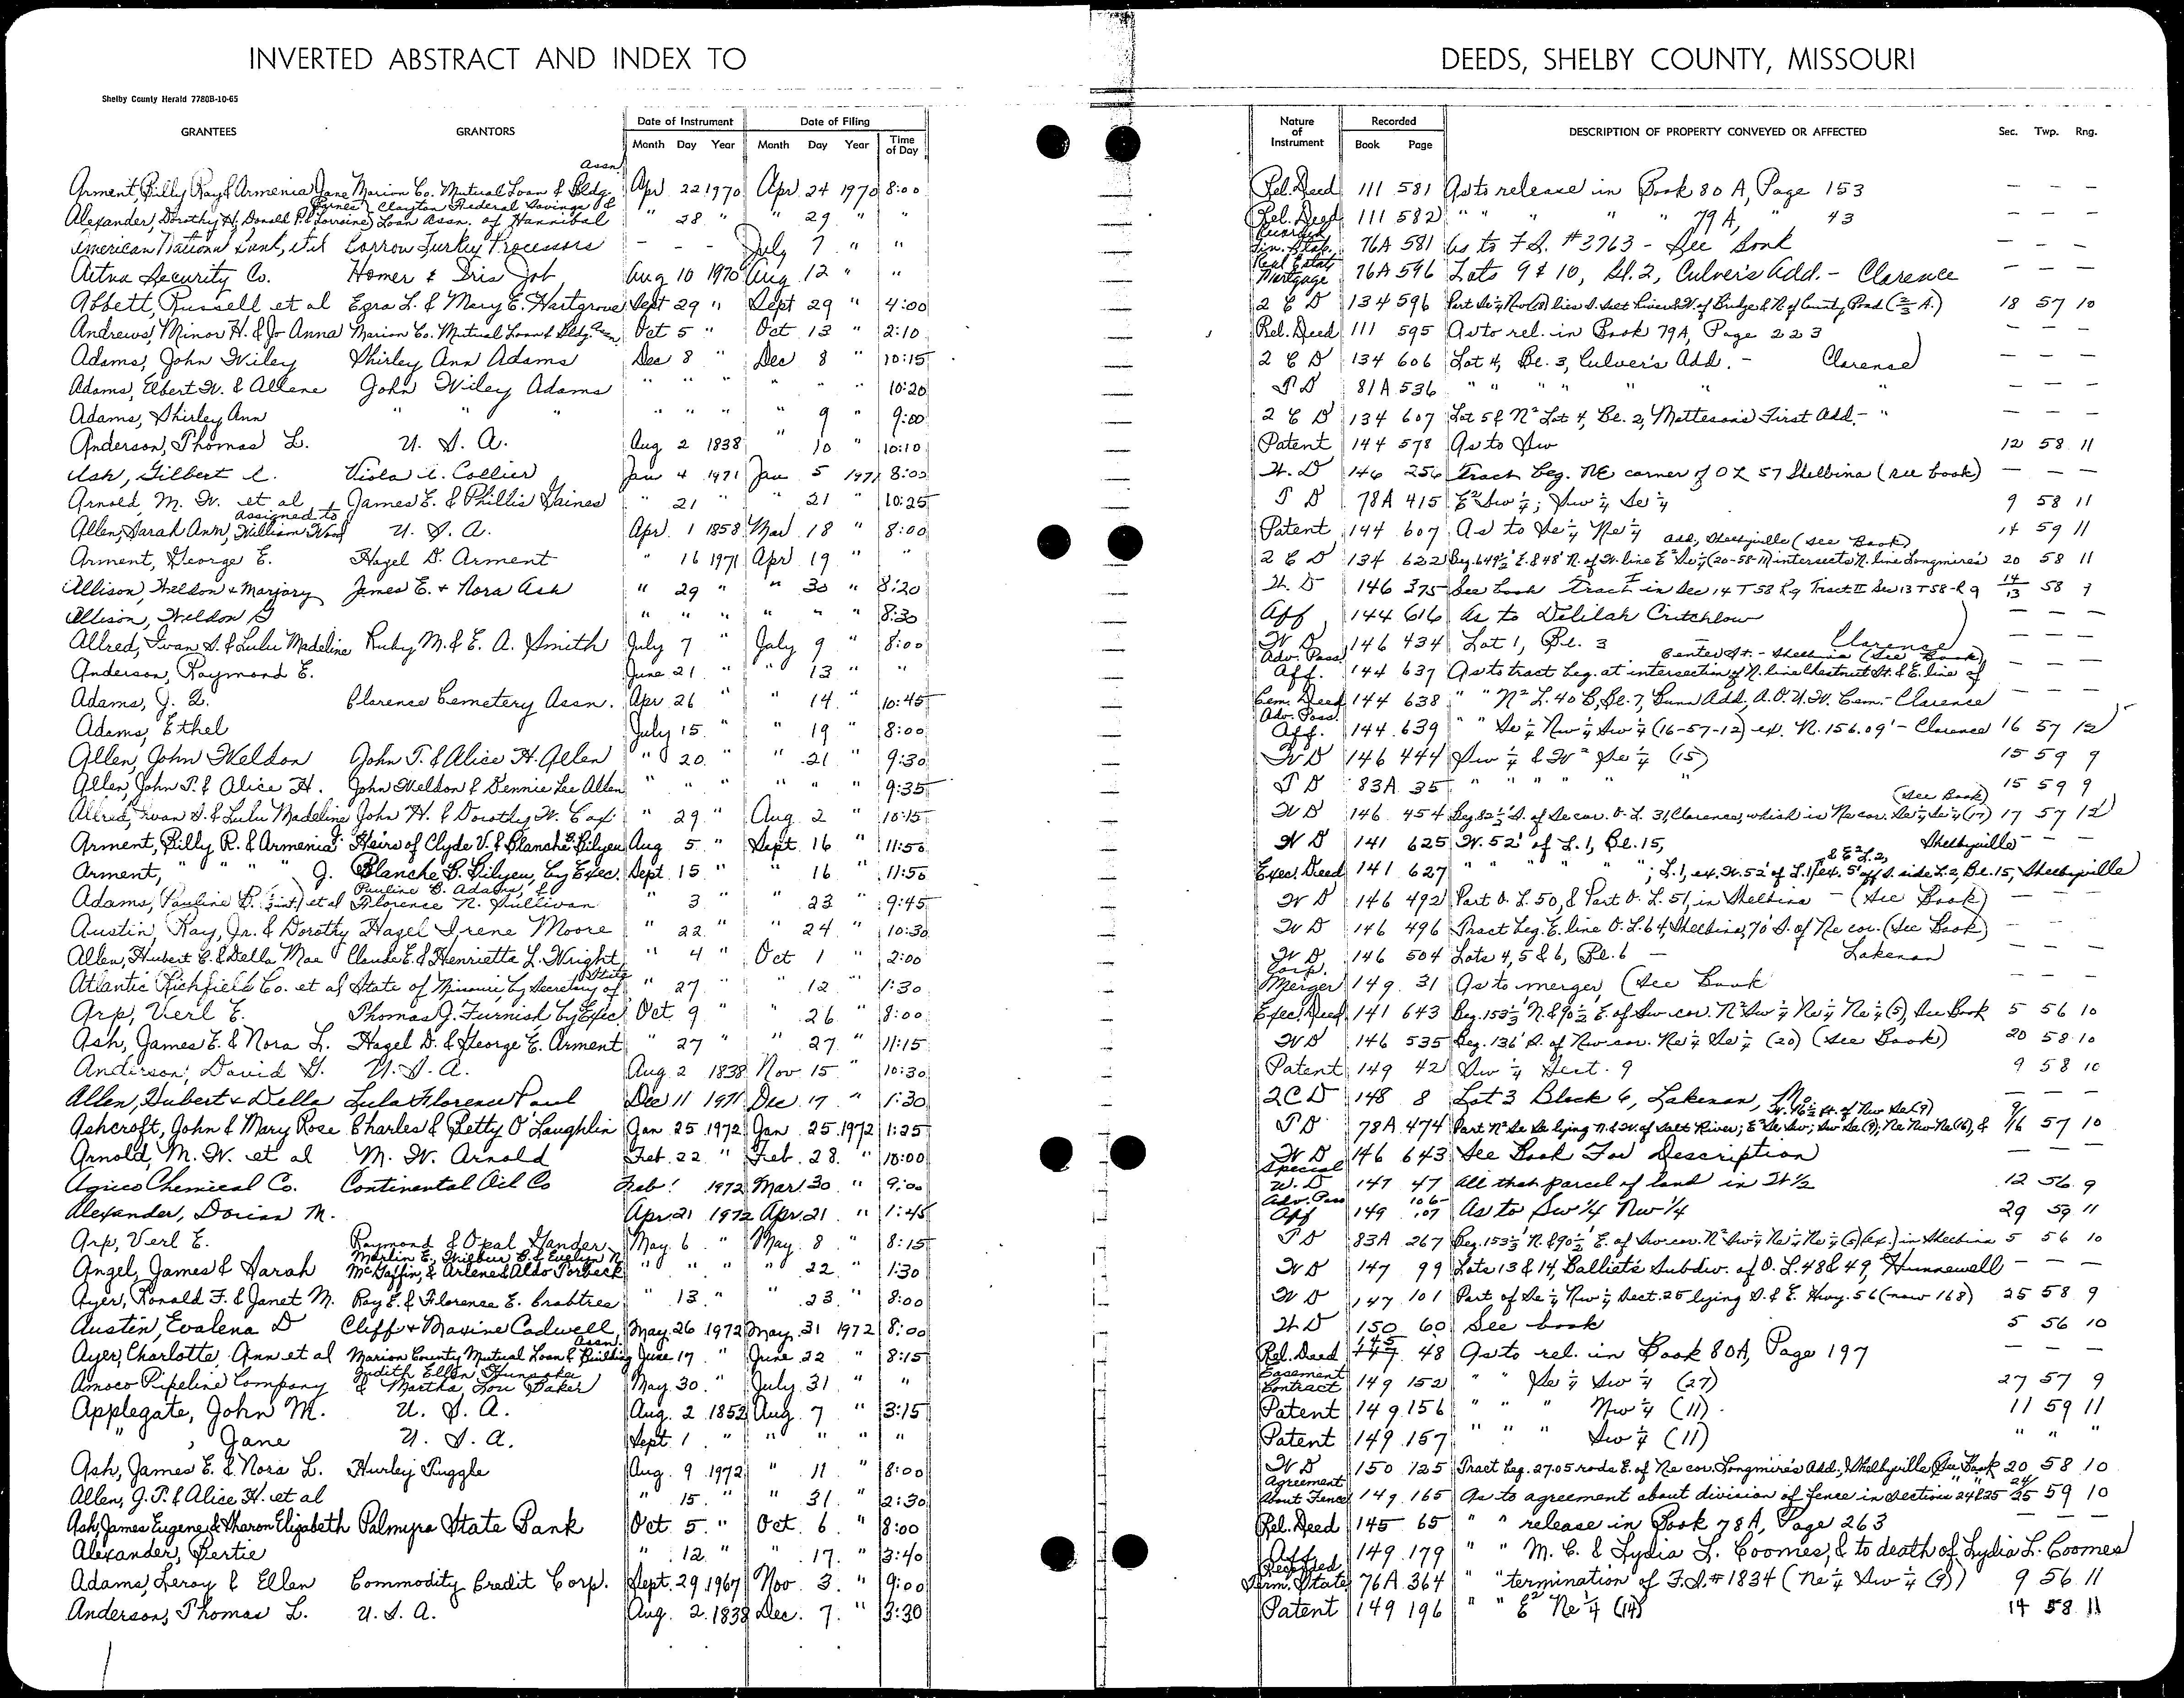 INVERTED ABSTRACT AND INDEX TO DEEDS, SHELBY COUNTY, MISSOURI
Shelby County Herald 7780B-10-65
GRANTEES GRANTORS Date of Instrument Date of Filing Nature of Instrument Recorded DESCRIPTION OF PROPERTY CONVEYED OR AFFECTED Sec. Twp. Rng.
Month Day Year Month Day Year Time of Day Book Page
Arment, Billy Ray & Armenia Jane Marion Co. Mutual Loan & Bldg. Assn Apr 22 1970 Apr 24 1970 8:00 Rel. Deed 111 581 As to release in Book 80 A, Page 153 — — —
Alexander, Dorothy H, Donald P. & Lorraine Clayton Federal Savings & Loan Assn. of Hannibal " 28 " " 29 " " Rel. Deed 111 582 " " " " " 79 A, " 43 — — —
American National Bank, et al Borrow Turkey Processors - - - July 7 " " 76A 581 As to F.S. #3763 - See Book — — —
Aetna Security Co. Homer & Iris Job Aug 10 1970 Aug 12 " " Real Estate Mortgage 76A 596 Lots 9 & 10, Bl. 2, Culver's Add. - Clarence — — —
Abbett, Russell et al Ezra L. & Mary E. Hartgrove Sept 29 " Sept 29 " 4:00 2 C D 134 596 18 57 10
Andrews, Minor H. & Jo Anna Marion Co. Mutual Loan & Bldg. Assn Oct 5 " Oct 13 " 2:10 Rel. Deed 111 595 As to rel. in Book 79A, Page 223 — — —
Adams, John Wiley Shirley Ann Adams Dec 8 " Dec 8 " 10:15 2 C D 134 606 Lot 4, Bl. 3, Culver's Add. - Clarence — — —
Adams, Elbert W. & Allene John Wiley Adams " " " " " " 10:20 T D 81A 536 " " " " " " — — —
Adams, Shirley Ann " " " " " " " 9 " 9:00 2 C D 134 607 Lot 5 & N² Lot 4, Bl. 2, Matteson's First Add. - " — — —
Anderson, Thomas L. U. S. A. Aug 2 1838 " 10 " 10:10 Patent 144 578 As to Sw 12 58 11
Ash, Gilbert L. Viola A. Collier Jan 4 1971 Jan 5 1971 8:00 W. D 146 256 Tract beg. NE corner of O L 57 Shelbina (see book) — — —
Arnold, M. W. et al James E. & Phillis Gaines " 21 " 21 " 10:25 T D 78A 415 E² Sw ¼; Sw ¼ Se ¼ 9 58 11
Allen, Sarah Ann, assigned to William Wood U. S. A. Apr. 1 1858 Mar 18 " 8:00 Patent 144 607 As to Se ¼ Ne ¼ 14 59 11
Arment, George E. Hazel D. Arment " 16 1971 Apr 19 " " 2 C D 134 622 Beg. 649½' E. & 48' N. of W. line E² Se ¼ (20-58-11) intersects N. line Longmire's add, Shelbyville (see Book) 20 58 11
Allison, Weldon & Marjory James E. + Nora Ash " 29 " " 30 " 8:20 W. D 146 375 See book Tract I in Sec 14 T 58 R 9 Tract II Sec 13 T 58-R 9 14/13 58 9
Allison, Weldon G " " " " " " 8:30 Aff 144 616 As to Delilah Critchlow — — —
Allred, Ivan S. & Lulu Madeline Ruby M. & E. A. Smith July 7 " July 9 " 8:00 W D 146 434 Lot 1, Bl. 3 Clarence — — —
Anderson, Raymond E. June 21 " " 13 " " Adv. Poss. Aff. 144 637 As to tract beg. at intersection of N. line Chestnut St. & E. line of Center St. - Shelbina (See Book) — — —
Adams, J. Q. Clarence Cemetery Assn. Apr. 26 " " 14 " 10:45 Cem. Deed 144 638 " " N² L. 40 B, Bl. 7, Bunn Add, A.O.U.W. Cem. - Clarence — — —
Adams, Ethel July 15 " " 19 " 8:00 Adv. Poss. Aff. 144 639 " " Se ¼ Nw ¼ Sw ¼ (16-57-12) ex. N. 156.09' - Clarence 16 57 12
Allen, John Weldon John T. & Alice H. Allen " 20 " " 21 " 9:30 W D 146 444 Sw ¼ & W² Se ¼ (15) 15 59 9
Allen, John T. & Alice H. John Weldon & Bennie Lee Allen " " " " " " 9:35 T D 83A 35 " " " " " 15 59 9
Allred, Ivan S. & Lulu Madeline John H. & Dorothy W. Cox " 29 " Aug. 2 " 10:15 W D 146 454 Beg. 82½' S. of Se cor. O. L. 31, Clarence, which is Ne cor. Se ¼ Se ¼ (17) (See Book) 17 57 12
Arment, Billy R. & Armenia J. Heirs of Clyde V. & Blanche B. Bilyeu Aug 5 " Sept. 16 " 11:50 W D 141 625 W. 52' of L. 1, Bl. 15, Shelbyville — —
Arment, " " " J. Blanche B. Bilyeu, by Exec. Sept. 15 " " 16 " 11:55 Exec. Deed 141 627 " " " " " " ; L. 1, ex. W. 52' of L. 1, & E² L. 2, ex. 5' off S. side L. 2, Bl. 15, Shelbyville
Adams, Pauline B. et al Pauline B. Adams, & Florence N. Sullivan " 3 " " 23 " 9:45 W D 146 492 Part O. L. 50, & Part O. L. 51, in Shelbina - (See Book) —
Austin, Ray, Jr. & Dorothy Hazel Irene Moore " 22 " " 24 " 10:30 W D 146 496 Tract beg. E. line O. L. 64, Shelbina, 70' S. of Ne cor. (See Book) —
Allen, Hubert C. & Della Mae Claude E. & Henrietta L. Wright " 4 " Oct 1 " 2:00 W D 146 504 Lots 4, 5 & 6, Bl. 6 - Lakenan — — —
Atlantic Richfield Co. et al State of Missouri, by Secretary of State " 27 " " 12 " 1:30 Corp. Merger 149 31 As to merger (See Book — — —
Arp, Verl E. Thomas J. Furnish, by Exec Oct 9 " " 26 " 8:00 Exec. Deed 141 643 Beg. 153⅓' N. & 90½' E. of Sw. cor. N² Sw ¼ Ne ¼ Ne ¼ (5), See Book 5 56 10
Ash, James E. & Nora L. Hazel D. & George E. Arment " 27 " " 27 " 11:15 W D 146 535 Beg. 136' S. of Nw cor. Ne ¼ Se ¼ (20) (See Book) 20 58 10
Anderson, David G. U. S. A. Aug. 2 1838 Nov. 15 " 10:30 Patent 149 42 Sw ¼ Sect. 9 9 58 10
Allen, Hubert & Della Lula Florence Paul Dec 11 1971 Dec. 17 " 1:30 2 C D 148 8 Lot 3 Block 6, Lakenan, Mo. — — —
Ashcroft, John & Mary Rose Charles & Betty O'Laughlin Jan 25 1972 Jan. 25 1972 1:25 T D 78A 474 Part N² Se Se lying N. & W. of Salt River; E² Se Sw; Sw Se (9); Ne Nw Ne (16), & W. 16½ ft. of Nw Se (9) 9/16 57 10
Arnold, M. W. et al M. W. Arnold Feb. 22 " Feb. 28 " 10:00 W D 146 643 See Book For Description — —
Agrico Chemical Co. Continental Oil Co Feb 1 1972 Mar 30 " 9:00 Special W. D 147 47 All that parcel of land in W ½ 12 56 9
Alexander, Dorian M. Apr. 21 1972 Apr. 21 " 1:45 Adv. Poss Aff 149 106-107 As to Sw ¼ Nw ¼ 29 59 11
Arp, Verl E. Raymond & Opal Gander May 6 " May 8 " 8:15 T D 83A 267 Beg. 153⅓' N. & 90½' E. of Sw cor. N² Sw ¼ Ne ¼ Ne ¼ (5) (ex.) in Shelbina 5 56 10
Angel, James & Sarah Marlin E., Wilbur B. & Evelyn N. McGaffin, & Arlene & Aldo Forbeck " " " " 22 " 1:30 W D 147 99 Lots 13 & 14, Balliet's Subdiv. of O. L. 48 & 49, Hunnewell — — —
Ayer, Ronald F. & Janet M. Ray E. & Florence E. Crabtree " 13 " " 23 " 8:00 W D 147 101 Part of Se ¼ Nw ¼ Sect. 25 lying S. & E. Hwy. 56 (now 168) 25 58 9
Austin, Evalena D Cliff & Maxine Cadwell May 26 1972 May 31 1972 8:00 W D 150 60 See book 5 56 10
Ayer, Charlotte Ann et al Marion County Mutual Loan & Building Assn. June 17 " June 22 " 8:15 Rel. Deed 145 48 As to rel. in Book 80A, Page 197 — — —
Amoco Pipeline Company Judith Ellen & Martha Lou Baker May 30 " July 31 " " Easement Contract 149 152 " " Se ¼ Sw ¼ (27) 27 57 9
Applegate, John M. U. S. A. Aug. 2 1852 Aug. 7 " 3:15 Patent 149 156 " " " Nw ¼ (11) 11 59 11
" , Jane U. S. A. Sept. 1 " " " " " Patent 149 157 " " " Sw ¼ (11) " " "
Ash, James E. & Nora L. Hurley Tuggle Aug. 9 1972 " 11 " 8:00 W D 150 125 Tract beg. 27.05 rods E. of Ne cor. Longmire's Add., Shelbyville (See Book 20 58 10
Allen, J. T. & Alice H. et al " 15 " " 31 " 2:30 Agreement About Fence 149 165 As to agreement about division of fence in sections 24 & 25 24/25 59 10
Ash, James Eugene & Sharon Elizabeth Palmyra State Bank Oct. 5 " Oct. 6 " 8:00 Rel. Deed 145 65 " " release in Book 78 A, Page 263 — — —
Alexander, Bertie " 12 " " 17 " 3:40 Aff. 149 179 " " M. C. & Lydia L. Coomes, & to death of Lydia L. Coomes
Adams, Leroy & Ellen Commodity Credit Corp. Sept. 29 1967 Nov. 3 " 9:00 Term. State 76A 364 " " termination of F.S. # 1834 (Ne ¼ Sw ¼ (9)) 9 56 11
Anderson, Thomas L. U. S. A. Aug. 2 1838 Dec. 7 " 3:30 Patent 149 196 " " E² Ne ¼ (14) 14 58 11